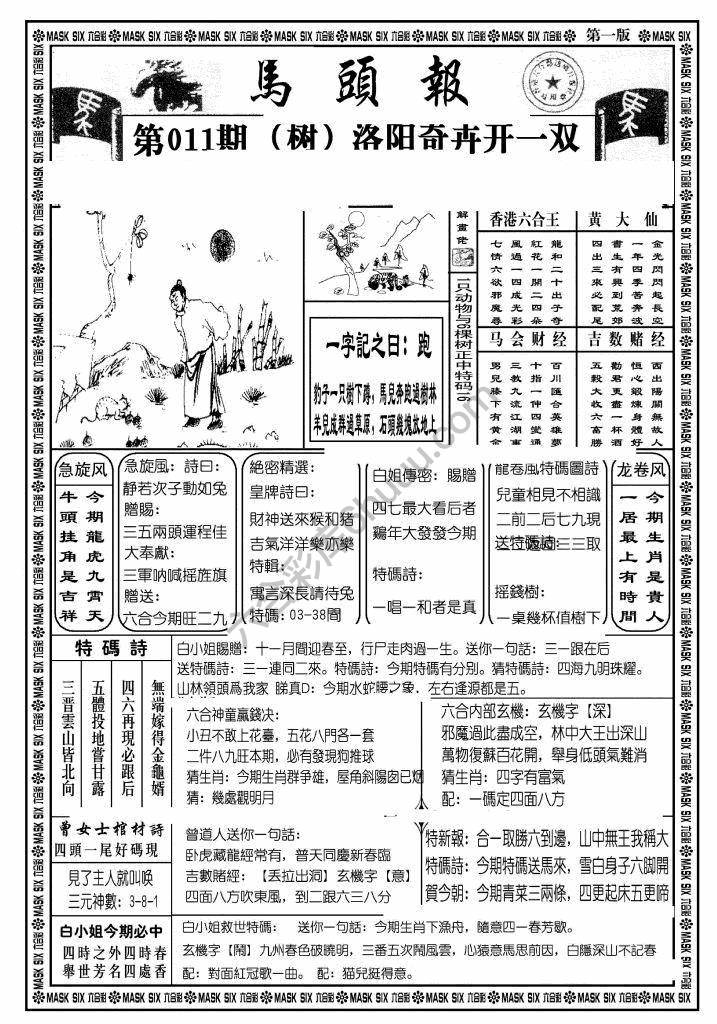 MASK SIX 六合彩
第一版
馬頭報
第011期（树）洛阳奇卉开一双
解畫佬
1只动物与6棵树正中特码16
一字記之曰：跑
豹子一只樹下蹲，馬兒奔跑過樹林
羊兒成群過草原，石頭幾塊放地上
香港六合王
七情六欲邪魔尋
風過一四成光彩
紅花一開二四朵
龍和二十出子奇
黄大仙
四出三來必配尾
書生有興到荒郊
一年四季苦奔波
金光閃閃起長空
马会财经
男兒膝下有黄金
三教九流江湖事
十指一伸四變通
百川匯合英雄夢
吉数赌经
五穀大收六富勝
勸君更盡一杯酒
恒心鍛煉身體好
西出陽關無故人
急旋风
今期龍虎九霄天
牛頭挂角是吉祥
急旋風：詩曰：
静若次子動如兔
贈賜：
三五兩頭運程佳
大奉獻：
三軍呐喊摇旌旗
贈送：
六合今期旺二九
絶密精選：
皇牌詩曰：
財神送來猴和豬
吉氣洋洋樂亦樂
特輯：
寓言深長請待兔
特碼：03-38間
白姐傳密：賜贈
四七最大看后者
鷄年大發發今期
特碼詩：
一唱一和者是真
龍卷風特碼圖詩
兒童相見不相識
二前二后七九現
送特碼詩：三三取
摇錢樹：
一桌幾杯值樹下
龙卷风
今期生肖是貴人
一居最上有時間
特碼詩
無端嫁得金龜婿
四六再現必跟后
五體投地嘗甘露
三晋雲山皆北向
白小姐賜贈：十一月間迎春至，行尸走肉過一生。送你一句話：三一跟在后
送特碼詩：三一連同二來。特碼詩：今期特碼有分别。猜特碼詩：四海九明珠耀。
山林領頭爲我家 睇真D：今期水蛇腰之象，左右逢源都是五。
六合神童贏錢决：
小丑不敢上花臺，五花八門各一套
二件八九旺本期，必有發現狗推球
猜生肖：今期生肖群争雄，屋角斜陽卤已烟
猜：幾處觀明月
六合内部玄機：玄機字【深】
邪魔過此盡成空，林中大王出深山
萬物復蘇百花開，舉身低頭氣難消
猜生肖：四字有富氣
配：一碼定四面八方
曾女士棺材詩
四頭一尾好碼現
見了主人就叫唤
三元神數：3-8-1
曾道人送你一句話：
卧虎藏龍經常有，普天同慶新春臨
吉數賭經：【丢拉出洞】玄機字【意】
四面八方吹東風，到二跟六三八分
特新報：合一取勝六到邊，山中無王我稱大
特碼詩：今期特碼送馬來，雪白身子六脚開
賀今朝：今期青菜三兩條，四更起床五更啼
白小姐今期必中
四時之外四時春
舉世芳名四處香
白小姐救世特碼：  送你一句話：今期生肖下漁舟，隨意四一春芳歇。
玄機字【鬧】九州春色破曉明，三番五次鬧風雲，心猿意馬思前因，白隱深山不記春
配：對面紅冠歌一曲。 配：猫兒挺得意。